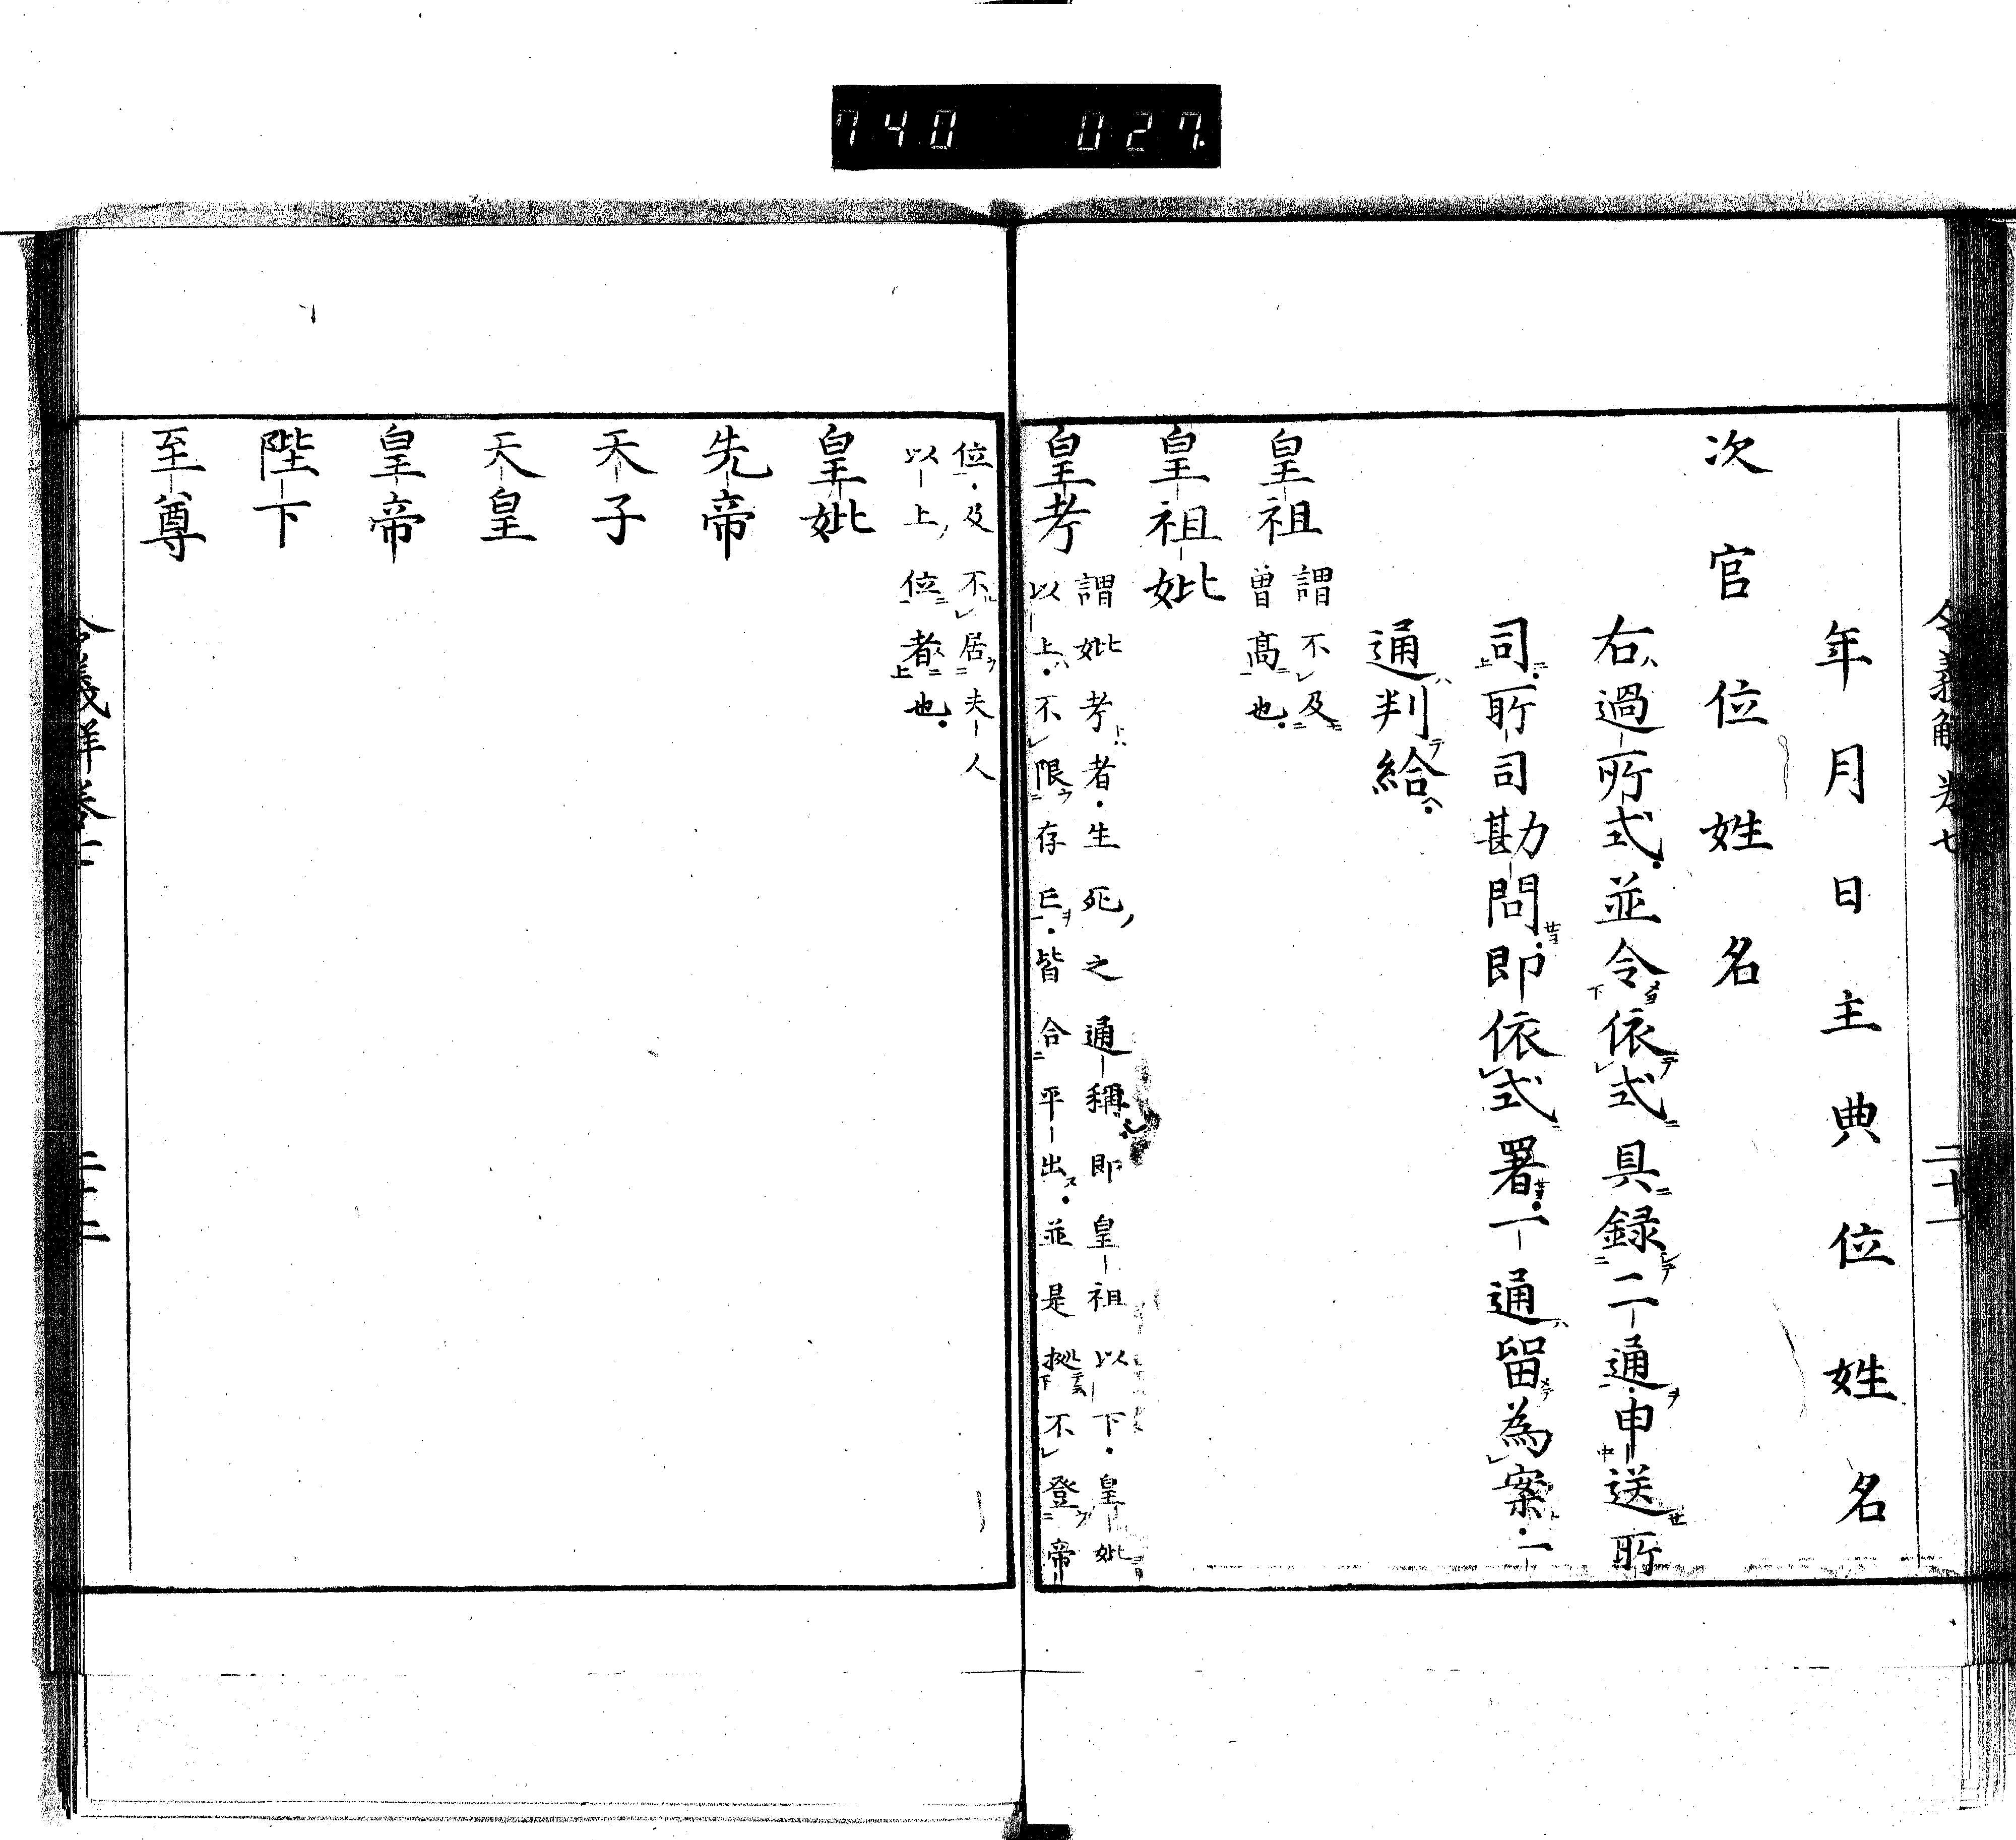 740 027
令義解卷七 二十一
年月日主典位姓名
次官位姓名
右過所式並令依式具録二通申送所
司所司勘問即依式署一通留為案一
通判給
皇祖
謂不及
曽髙也
皇祖妣
皇考
謂妣考者生死之通稱即皇祖以下皇妣
以上不限存亡皆合平出並是據不登帝
位及不居夫人
以上位者也
皇妣
先帝
天子
天皇
皇帝
陛下
至尊